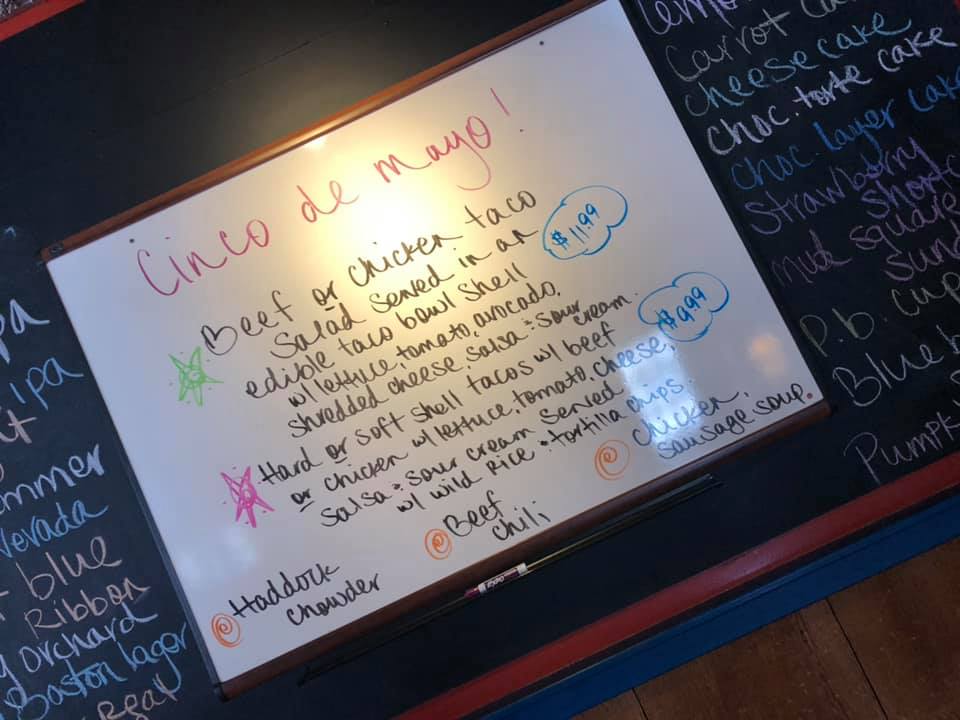 Cinco de mayo!
Beef or chicken taco
salad served in an
edible taco bowl shell
w/ lettuce, tomato, avocado,
shredded cheese, salsa & sour cream.
$11.99
Hard or soft shell tacos w/ beef
or chicken w/ lettuce, tomato, cheese,
salsa & sour cream served
w/ wild rice & tortilla chips.
$9.99
Haddock
chowder
Beef
chili
chicken,
sausage soup.
ipa
Nevada
blue
Ribbon
orchard
Boston lager
Carrot
cheese cake
choc. torte cake
choc. layer cake
strawberry
mud square
P.b. cup